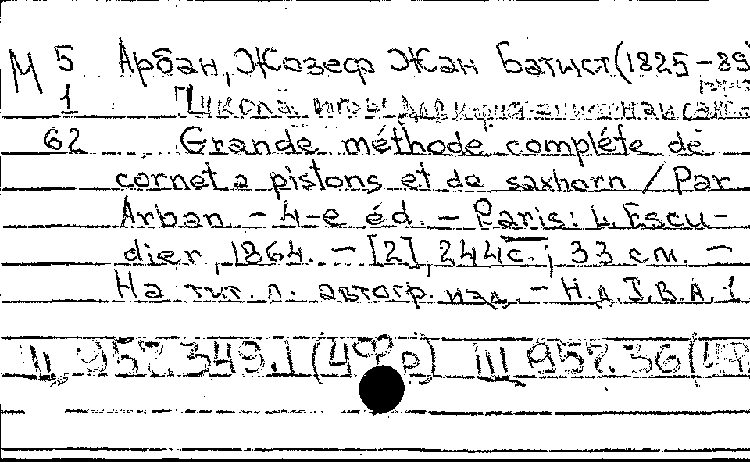 М 5 Арбан, Жозеф Жан Батист (1825-89)
1 [Школа игры для корнет-а-
62 Grande méthode complète de
cornet a pistons et de saxhorn / Par
Arban. - 4-e éd. - Paris: L. Escu-
dier, 1864. - [2], 244 с.; 33 см. -
На тит. л. автогр. изд. - Н.д. J.B.A. 1
II 957.349.1 (4Фр) III 957.36 (4Ф